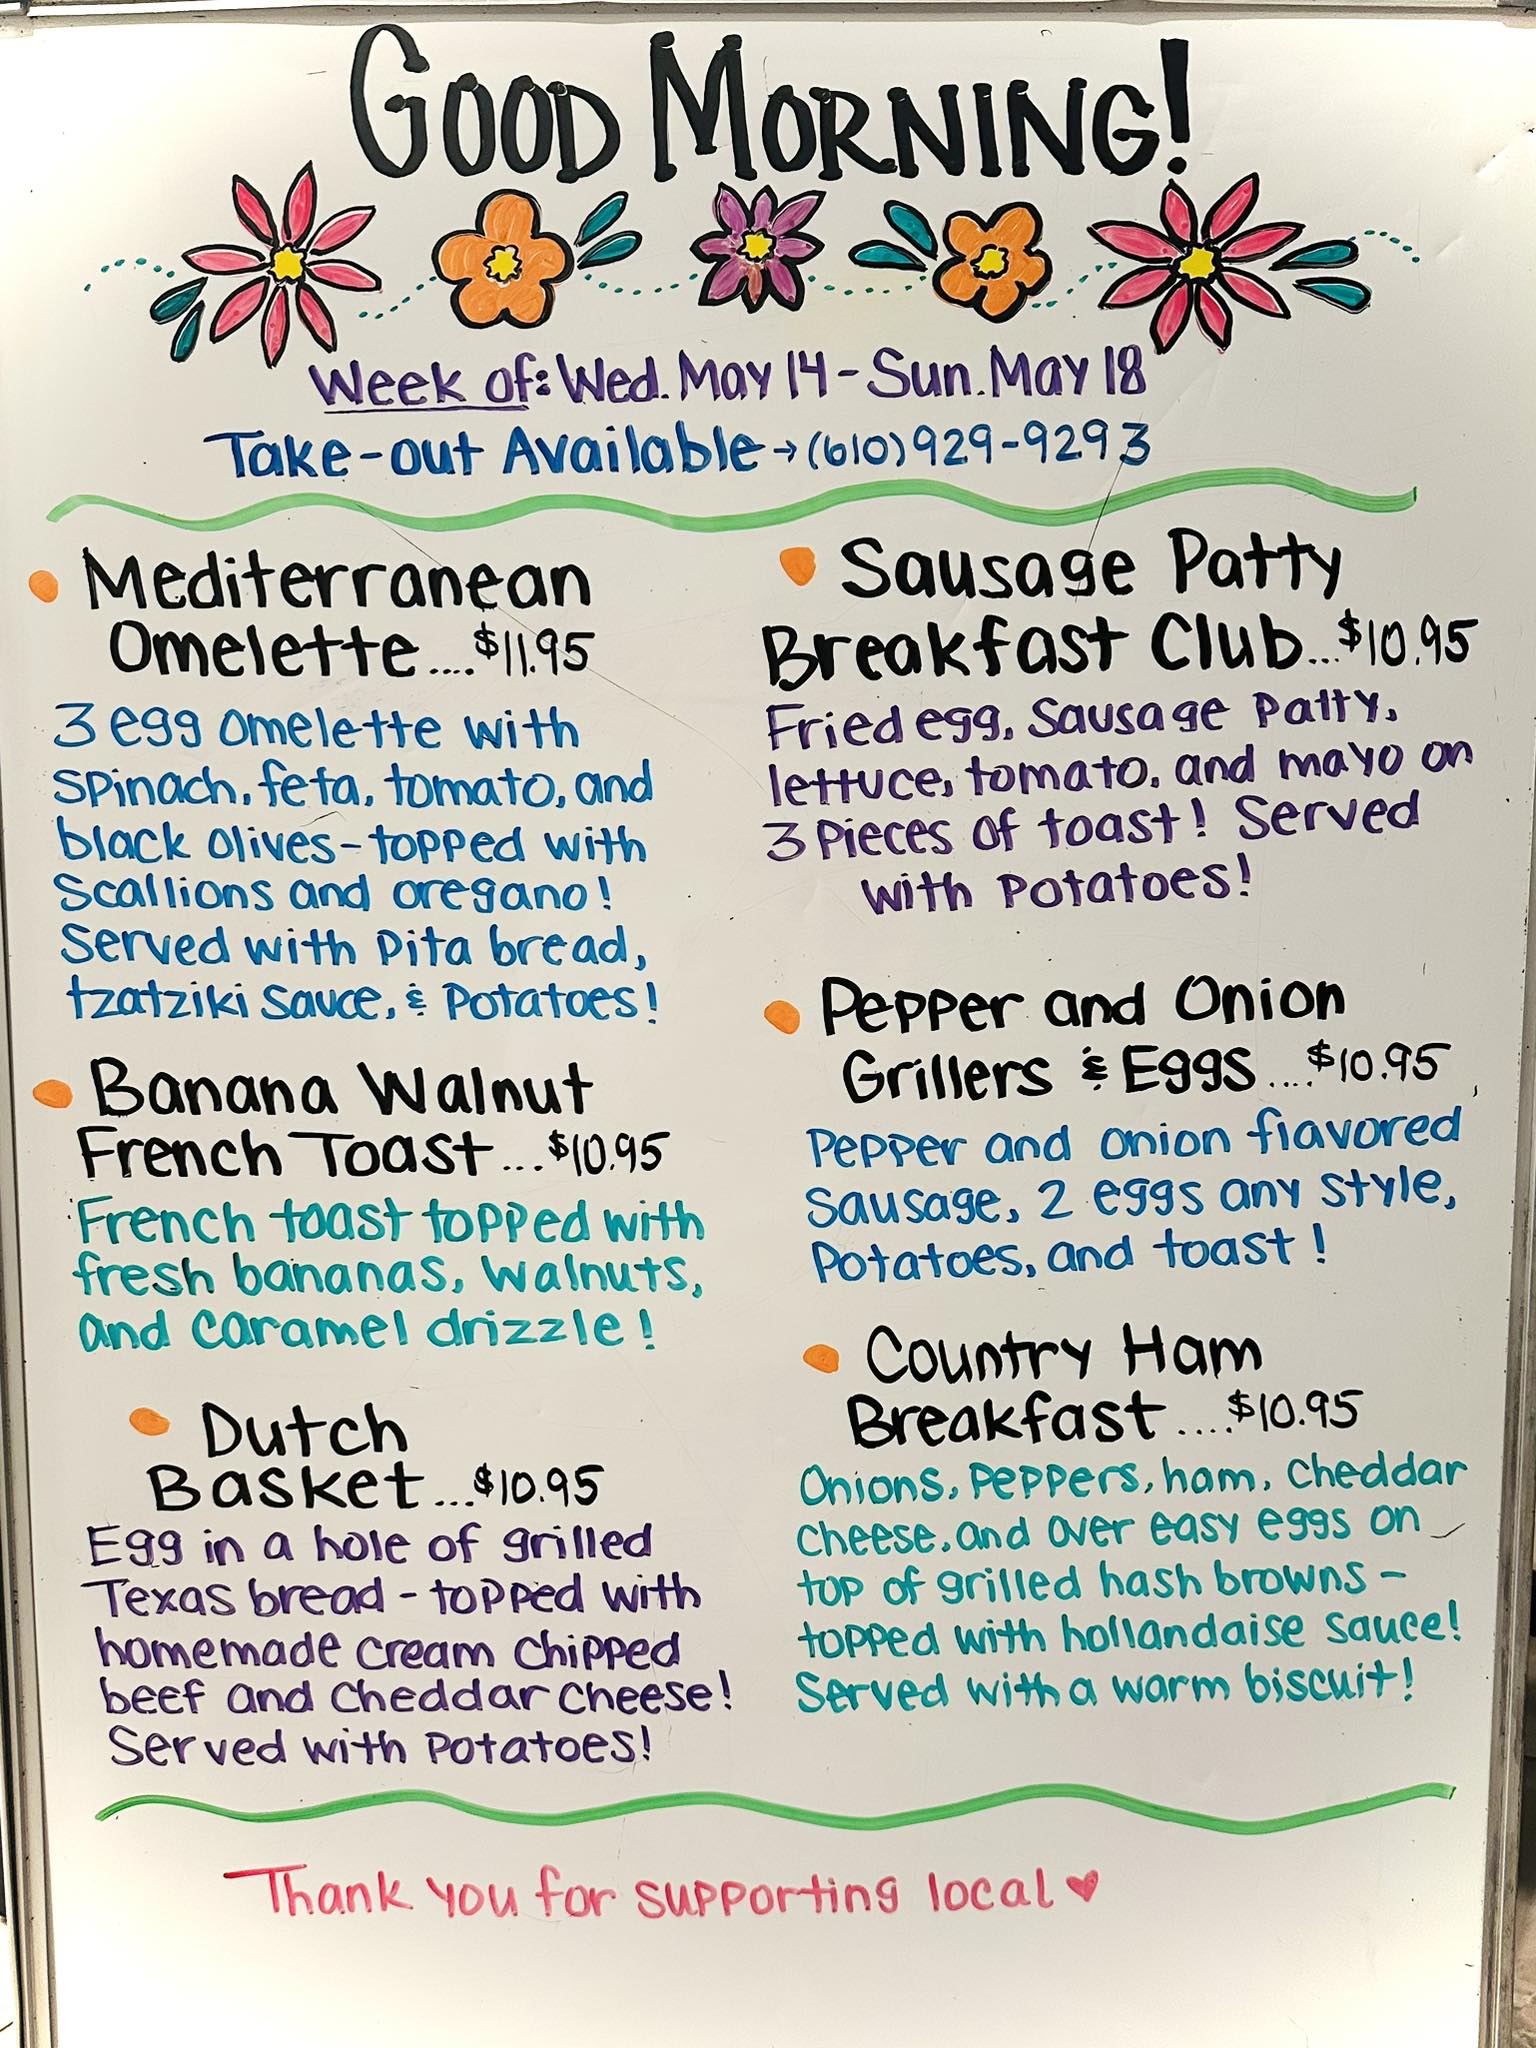 GOOD MORNING!
Week of: Wed. May 14 - Sun. May 18
Take-out Available → (610) 929-9293
• Mediterranean
Omelette.... $11.95
3 egg omelette with
spinach, feta, tomato, and
black olives - topped with
scallions and oregano!
Served with pita bread,
tzatziki sauce, & potatoes!
• Banana Walnut
French Toast... $10.95
French toast topped with
fresh bananas, walnuts,
and caramel drizzle!
• Dutch
Basket... $10.95
Egg in a hole of grilled
Texas bread - topped with
homemade cream chipped
beef and cheddar cheese!
Served with potatoes!
• Sausage Patty
Breakfast Club... $10.95
Fried egg, sausage patty,
lettuce, tomato, and mayo on
3 pieces of toast! Served
with potatoes!
• Pepper and Onion
Grillers & Eggs.... $10.95
Pepper and onion flavored
sausage, 2 eggs any style,
potatoes, and toast!
• Country Ham
Breakfast.... $10.95
Onions, peppers, ham, cheddar
cheese, and over easy eggs on
top of grilled hash browns -
topped with hollandaise sauce!
Served with a warm biscuit!
Thank you for supporting local ♥